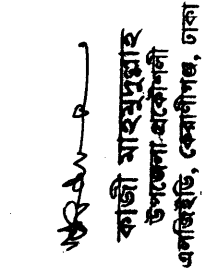 কাজী মাহমুদুল্লাহ
উপজেলা প্রকৌশলী
এলজিইডি, কেরাণীগঞ্জ, ঢাকা